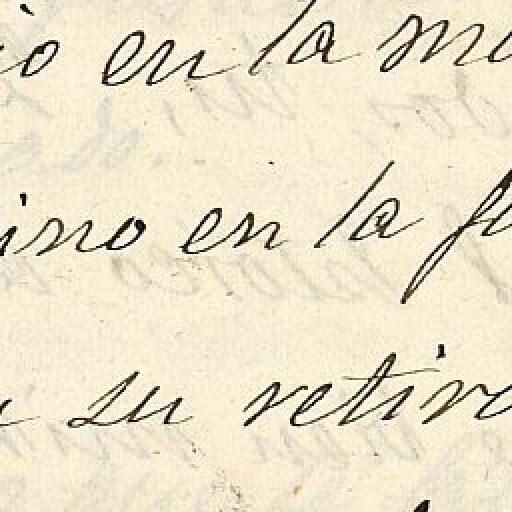 io en la ma
ino en la fu
su retir